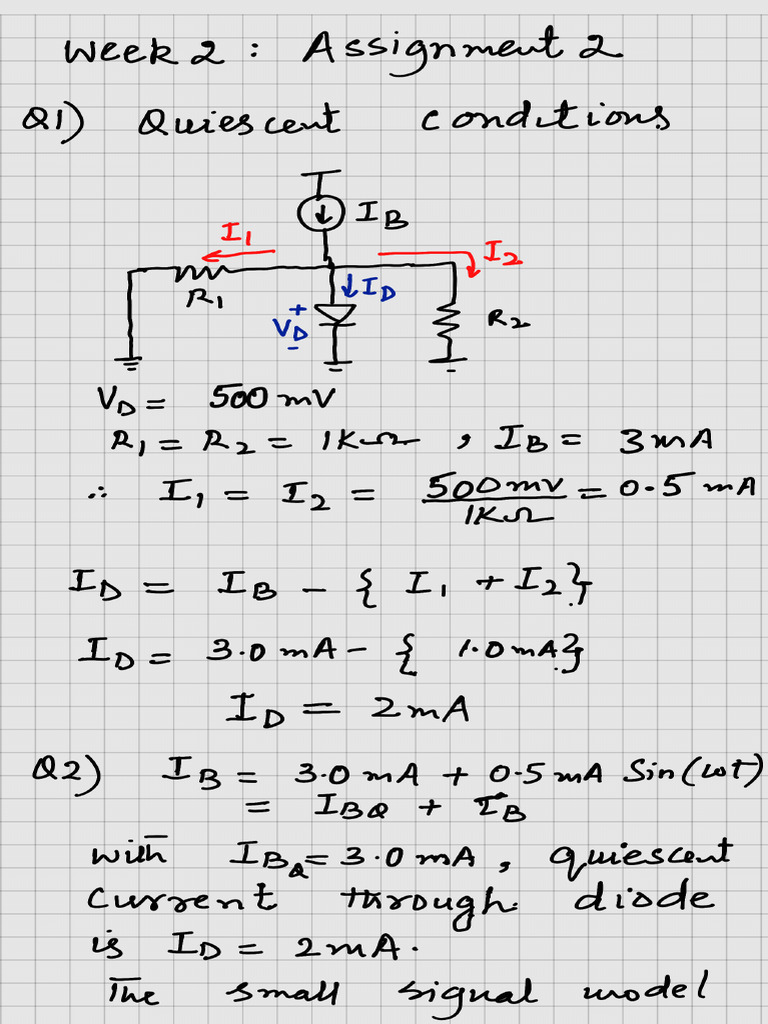 Week 2 : Assignment 2
Q1) Quiescent conditions
I_B
I_1
I_2
R_1
I_D
+
V_D
-
R_2
V_D = 500 mV
R_1 = R_2 = 1KΩ , I_B = 3mA
∴ I_1 = I_2 = 500mV/1KΩ = 0.5 mA
I_D = I_B - { I_1 + I_2}
I_D = 3.0 mA - { 1.0mA}
I_D = 2mA
Q2) I_B = 3.0 mA + 0.5 mA Sin(ωt)
= I_BQ + I_B
with I_BQ = 3.0 mA, quiescent
current through diode
is I_D = 2mA.
The small signal model